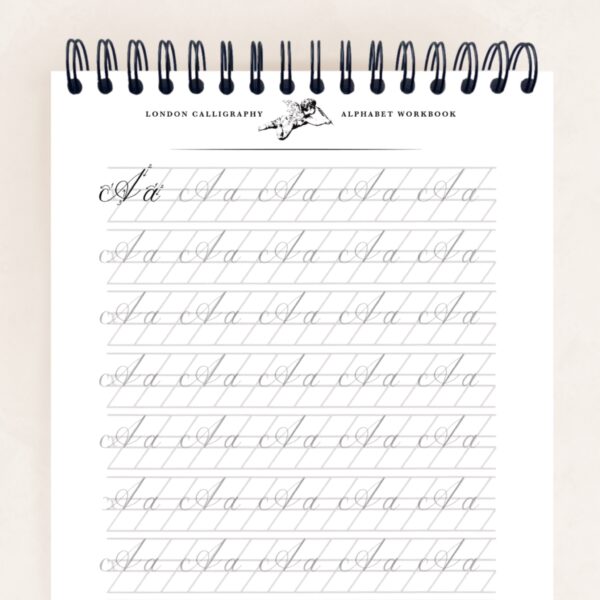 LONDON CALLIGRAPHY ALPHABET WORKBOOK
Aa Aa Aa Aa Aa
Aa Aa Aa Aa Aa
Aa Aa Aa Aa Aa
Aa Aa Aa Aa Aa
Aa Aa Aa Aa Aa
Aa Aa Aa Aa Aa
Aa Aa Aa Aa Aa